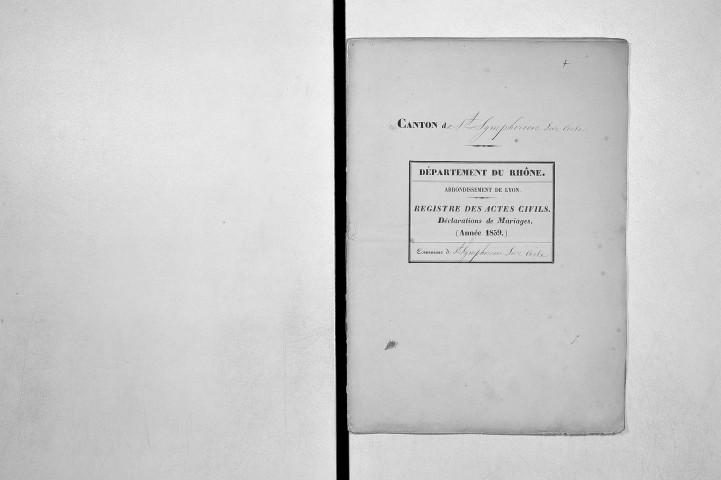 CANTON de St Symphorien Sur Coise
DÉPARTEMENT DU RHÔNE.
ARRONDISSEMENT DE LYON.
REGISTRE DES ACTES CIVILS.
Déclarations de Mariages.
(Année 1859.)
Commune de St Symphorien Sur Coise